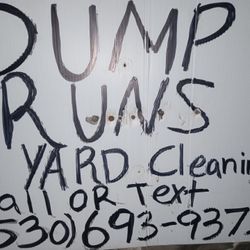 DUMP
RUNS
YARD Cleanin
all OR Text
530)693-937